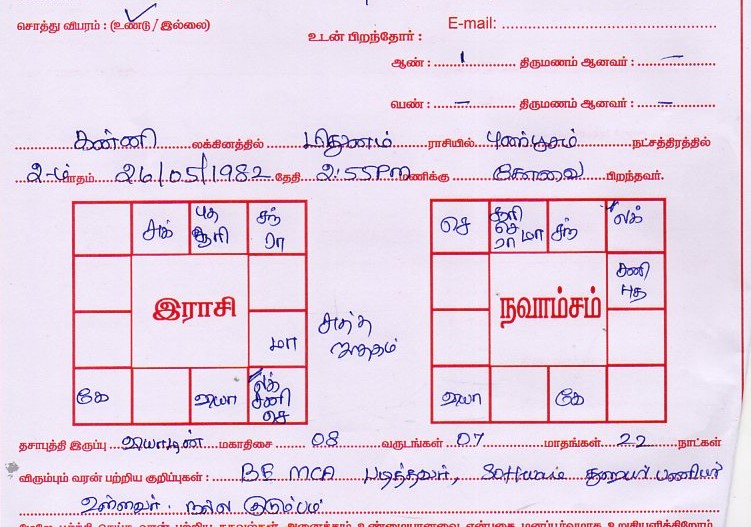 சொத்து விபரம் : (உண்டு / இல்லை)
E-mail:
உடன் பிறந்தோர் :
ஆண் : 1 திருமணம் ஆனவர் : –
பெண் : – திருமணம் ஆனவர் : –
கன்னி லக்கினத்தில் மிதுனம் ராசியில் புனர்பூசம் நட்சத்திரத்தில்
2-ம் பாதம் 26/05/1982 தேதி 2:55PM மணிக்கு கோவை பிறந்தவர்.
சுக் புத சூரி சந் ரா
செ சூரி செ ரா மா சந் லக்
சனி புத
இராசி
நவாம்சம்
மா சுத்த ஜாதகம்
கே வியா லக் சனி செ
வியா கே
தசாபுத்தி இருப்பு வியாழன் மகாதிசை 08 வருடங்கள் 07 மாதங்கள் 22 நாட்கள்
விரும்பும் வரன் பற்றிய குறிப்புகள் : B.E MCA படித்தவர், Software துறையில் பணியில்
உள்ளவர். நல்ல குடும்பம்